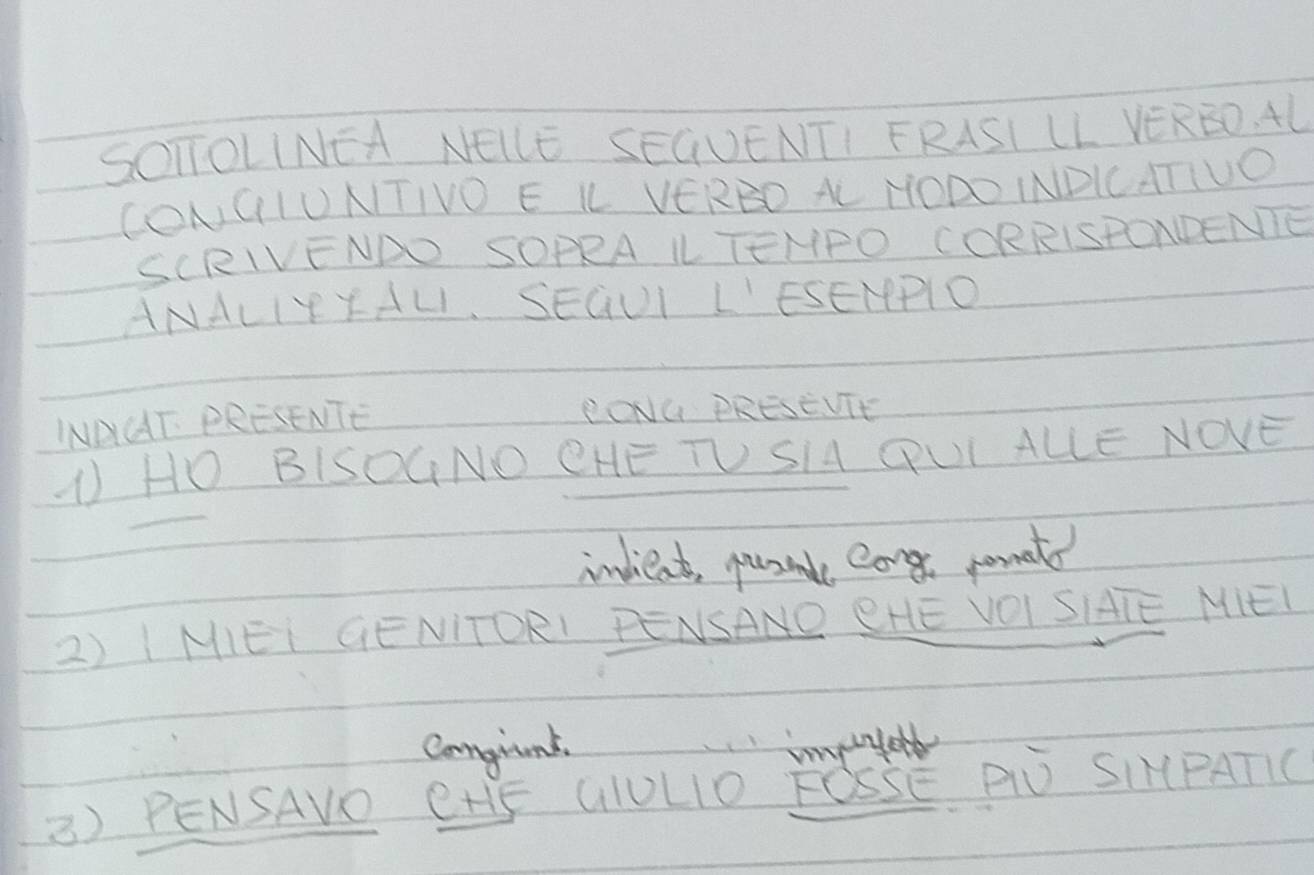 SOTTOLINEA NELLE SEGUENTI FRASI IL VERBO AL
CONGIUNTIVO E IL VERBO AL MODO INDICATIVO
SCRIVENDO SOPRA IL TEMPO CORRISPONDENTE
ANALIZZALI. SEGUI L'ESEMPIO
INDICAT. PRESENTE CONG PRESENTE
1) HO BISOGNO CHE TU SIA QUI ALLE NOVE
indicat. presente cong.
2) I MIEI GENITORI PENSANO CHE VOI SIATE MIEI
congiunt. imperfetto
3) PENSAVO CHE GIULIO FOSSE PIÙ SIMPATIC